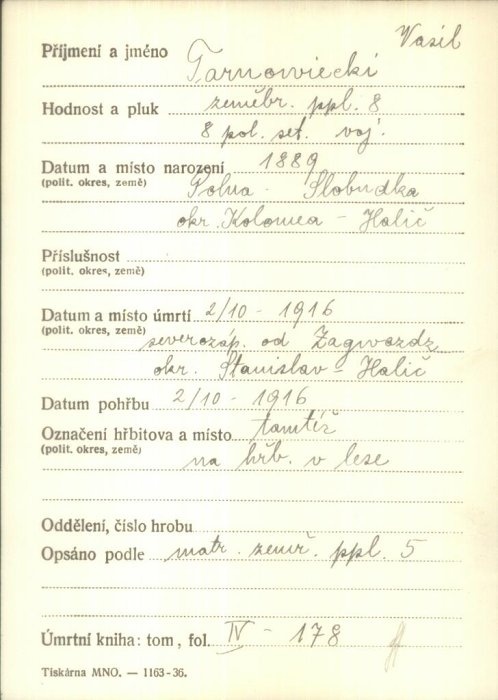 Vasil
Příjmení a jméno Tarnowiecki
Hodnost a pluk zeměbr. ppl. 8
8 pol. set. voj.
Datum a místo narození 1889
(polit. okres, země) Polna - Slobudka
okr. Kolomea - Halič
Příslušnost
(polit. okres, země)
Datum a místo úmrtí 2/10 - 1916
(polit. okres, země) severozáp. od Zagwozdz
okr. Stanislav - Halič
Datum pohřbu 2/10 - 1916
Označení hřbitova a místo tamtéž
(polit. okres, země) na hřb. v lese
Oddělení, číslo hrobu
Opsáno podle matr. zemř. ppl. 5
Úmrtní kniha: tom, fol. IV - 178
Tiskárna MNO. — 1163-36.